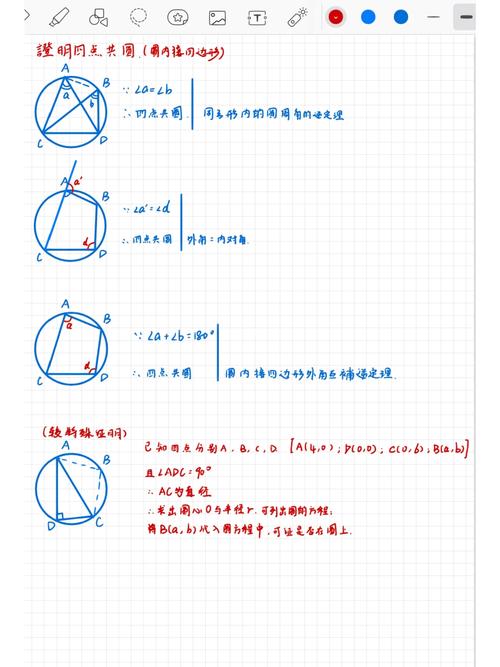 證明四点共圆.(圆内接四边形)
A
B
a
b
C
D
∵ ∠a=∠b
∴ 四点共圆.
A
a'
B
d
C
D
∵ ∠a'=∠d
∴ 四点共圆
外角=内对角.
A
B
a
d
C
D
∵ ∠a+∠b=180°
∴ 四点共圆
圆内接四边形外角互補逆定理.
(较特殊证明)
A
B
D
C
已知四点分别A、B、C、D. [A(4,0);D(0,0);C(0,6);B(a,b)]
且∠ADC=90°
∴ AC为直径
∴ 求出圆心O与半径r.可列出圆的方程;
将B(a,b)代入圆方程中,可证是否在圆上.